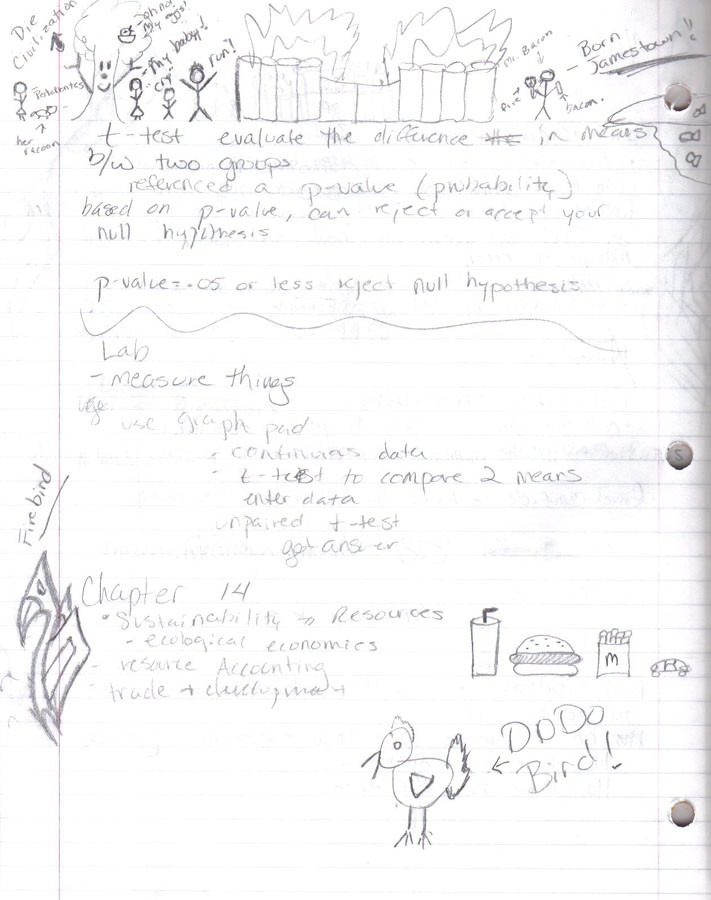 Die
Civilization
oh no!
My eggs!
My baby!
cry
run!
Pocahontas
her racoon
Mr. Bacon
Fire
bacon.
Born
Jamestown!!
t-test evaluate the difference in means
b/w two groups
referenced a p-value (probability)
based on p-value, can reject or accept your
null hypothesis
p-value=.05 or less reject null hypothesis
Lab
- measure things
use graph pad
- continuous data
- t-test to compare 2 means
enter data
unpaired t-test
get answer
Firebird
Chapter 14
• Sustainability + Resources
- ecological economics
- resource Accounting
- trade + development
m
← DODO
Bird!